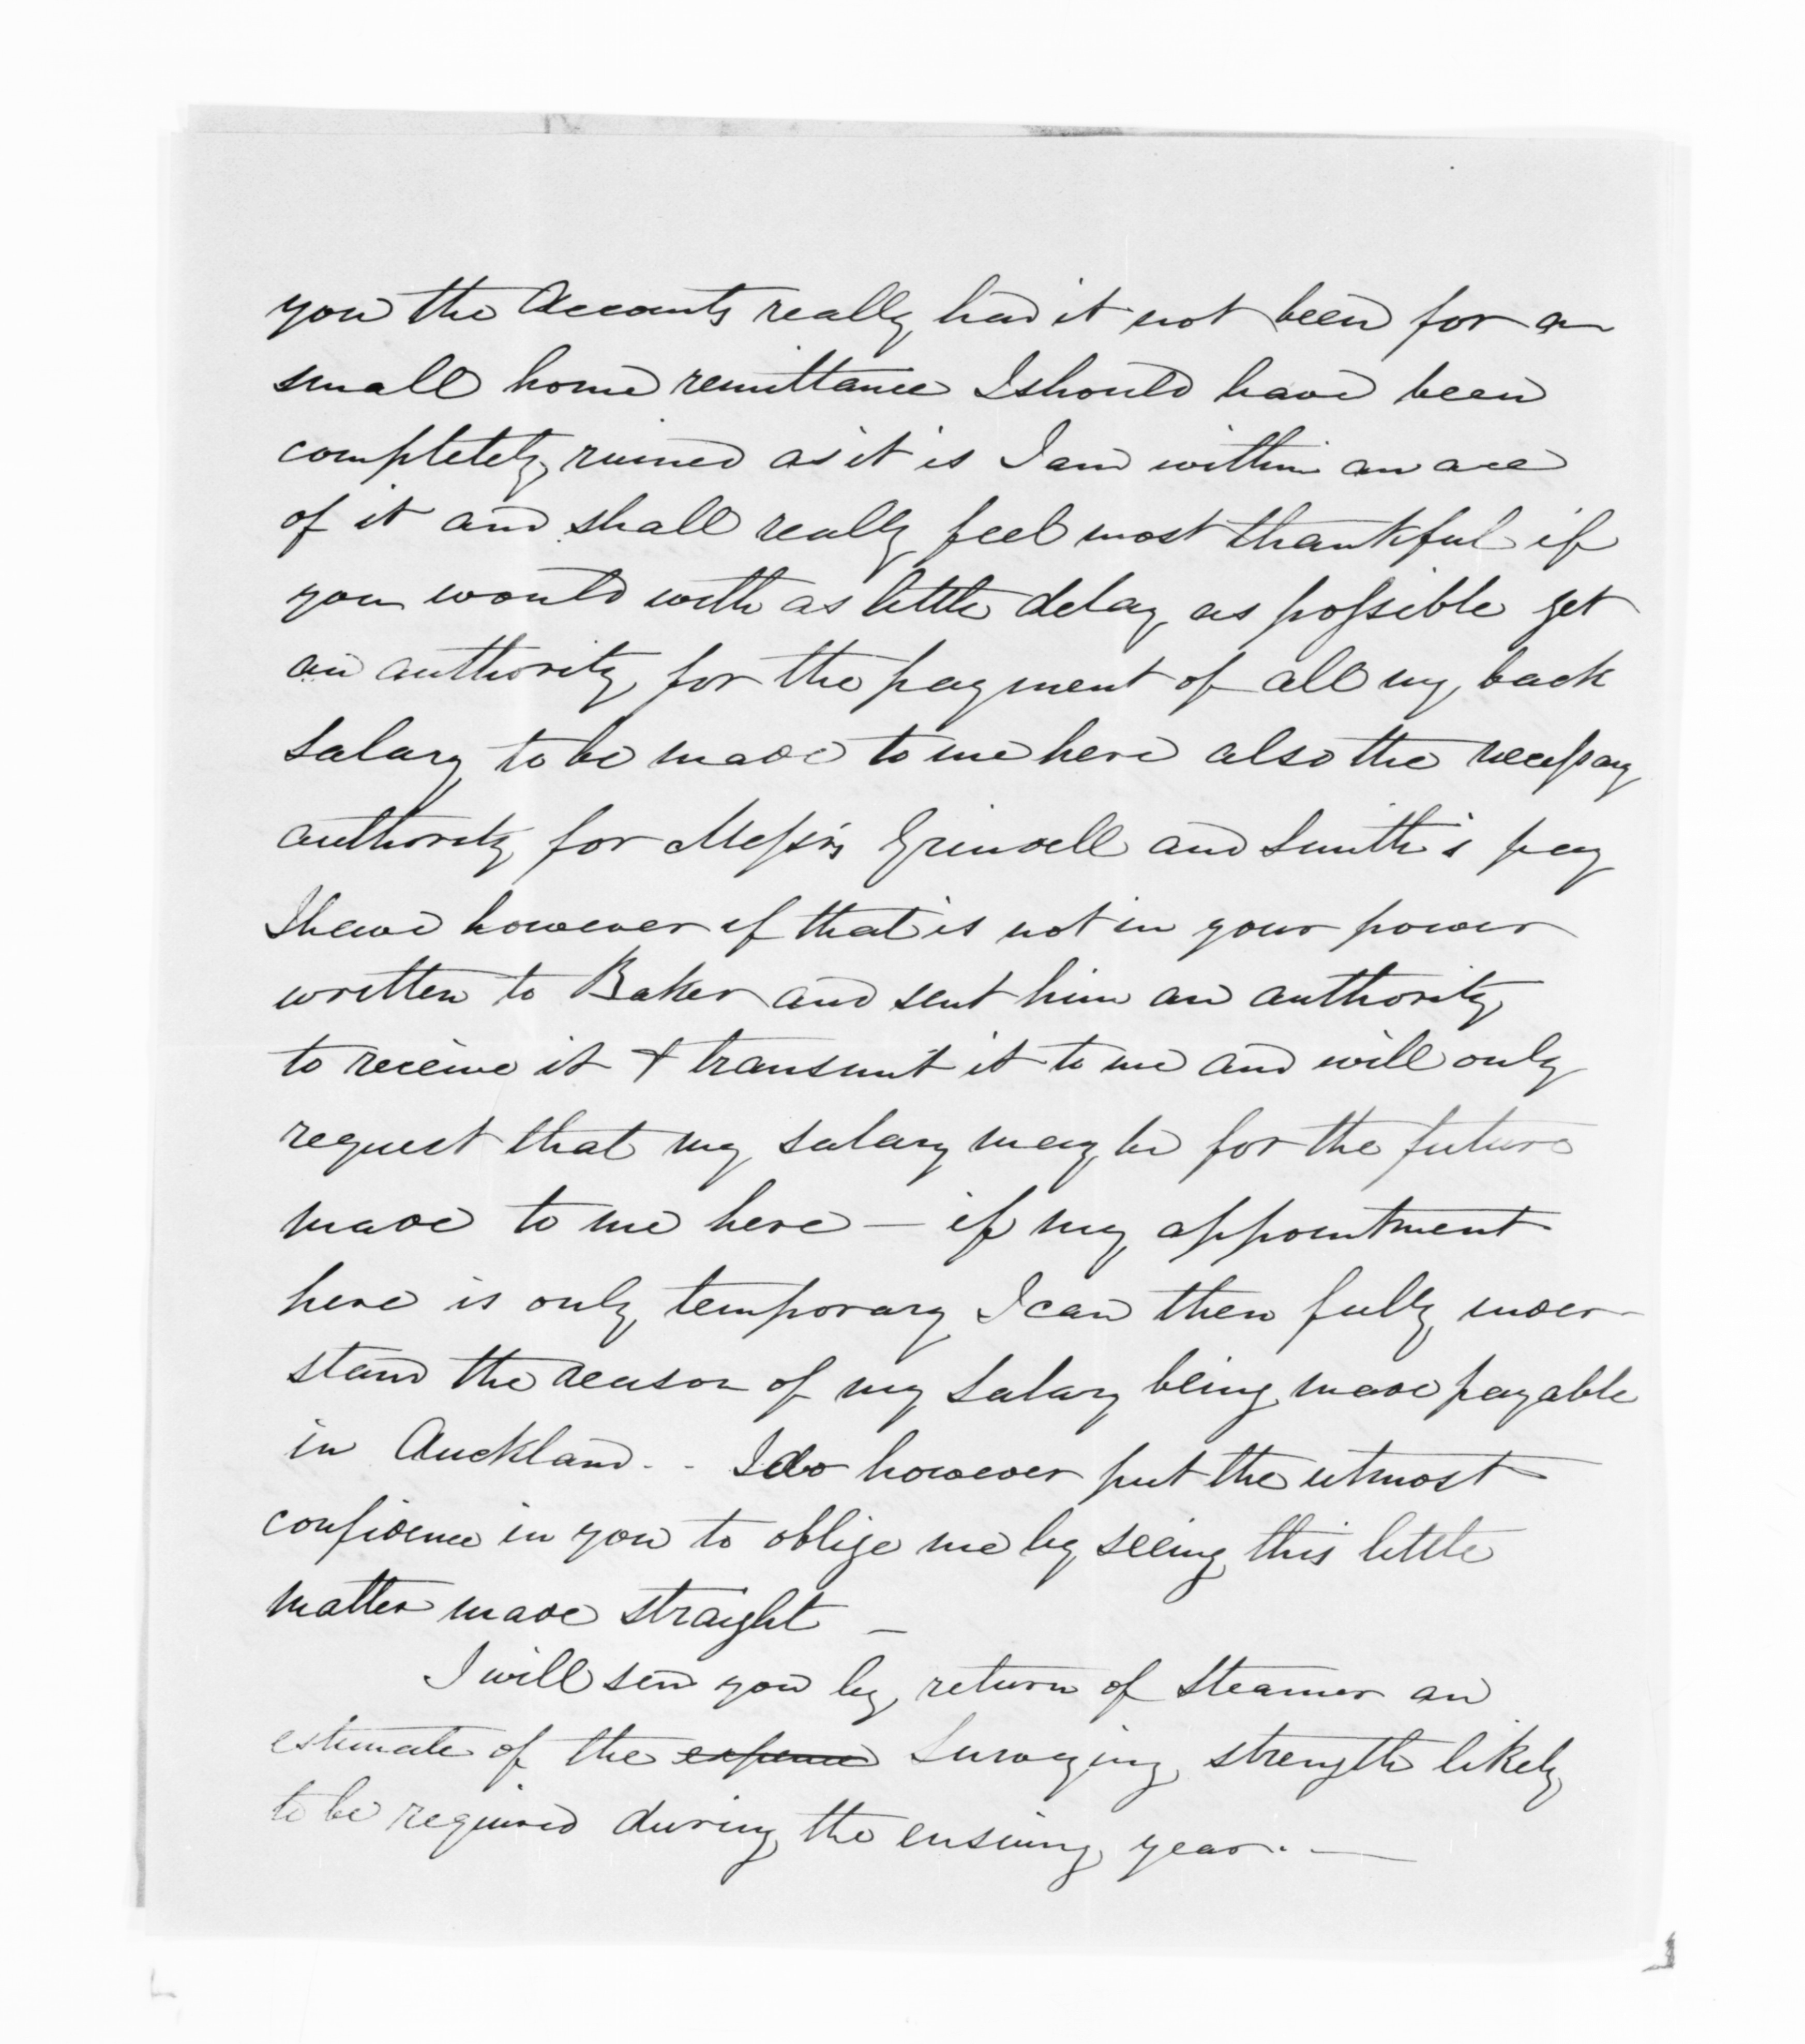 you the Accounts really had it not been for a
small home remittance I should have been
completely ruined as it is I am within an ace
of it and shall really feel most thankful if
you would with as little delay as possible get
an authority for the payment of all my back
salary to be made to me here also the necessary
authority for Messrs Grindell and Smith's pay
I have however if that is not in your power
written to Baker and sent him an authority
to receive it & transmit it to me and will only
request that my salary may be for the future
made to me here — if my appointment
here is only temporary I can then fully under-
stand the reason of my salary being made payable
in Auckland. - I do however put the utmost
confidence in you to oblige me by seeing this little
matter made straight —
I will send you by return of Steamer an
estimate of the expence Surveying strength likely
to be required during the ensuing year. —